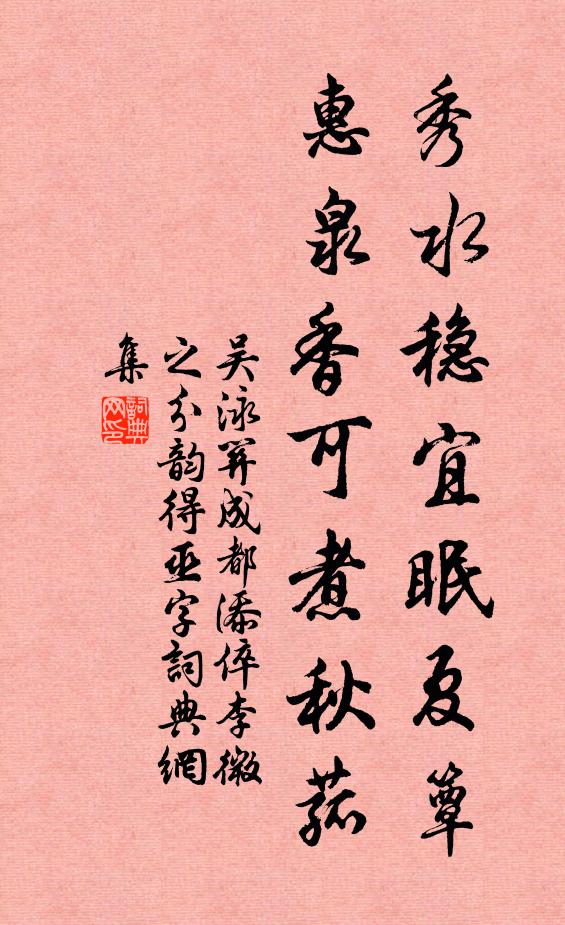 秀水稳宜眠夏簟
惠泉香可煮秋菰
吴泳成都添倅李微
之分韵得巫字詞典網
集
詞典网印